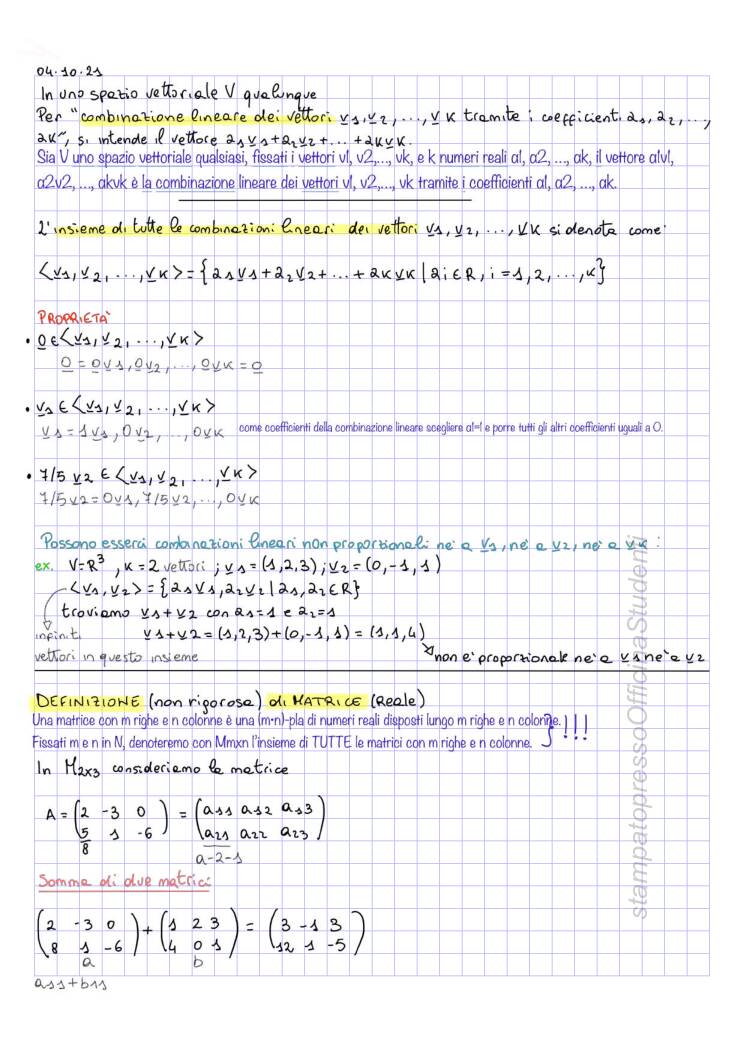 04.10.21
In uno spazio vettoriale V qualunque
Per "combinazione lineare dei vettori v1, v2, ..., vk tramite i coefficienti a1, a2, ...,
ak", si intende il vettore a1v1+a2v2+...+akvk.
Sia V uno spazio vettoriale qualsiasi, fissati i vettori v1, v2,..., vk, e k numeri reali a1, a2, ..., ak, il vettore a1v1,
a2v2, ..., akvk è la combinazione lineare dei vettori v1, v2,..., vk tramite i coefficienti a1, a2, ..., ak.
L'insieme di tutte le combinazioni lineari dei vettori v1, v2, ..., vk si denota come:
<v1, v2, ..., vk> = {a1v1+a2v2+...+akvk | ai∈R, i=1,2,...,k}
PROPRIETA'
• 0∈<v1, v2, ..., vk>
0 = 0v1, 0v2, ..., 0vk = 0
• v1 ∈ <v1, v2, ..., vk>
v1 = 1v1, 0v2, ..., 0vk come coefficienti della combinazione lineare scegliere a1=1 e porre tutti gli altri coefficienti uguali a 0.
• 7/5 v2 ∈ <v1, v2, ..., vk>
7/5v2 = 0v1, 7/5v2, ..., 0vk
Possono esserci combinazioni lineari non proporzionali ne' a v1, ne' a v2, ne' a vk :
ex. V=R³, k=2 vettori ; v1=(1,2,3) ; v2=(0,-1,1)
<v1, v2> = {a1v1, a2v2 | a1, a2∈R}
troviamo v1+v2 con a1=1 e a2=1
infiniti v1+v2 = (1,2,3)+(0,-1,1) = (1,1,4)
vettori in questo insieme non e' proporzionale ne' a v1 ne' a v2
DEFINIZIONE (non rigorosa) di MATRICE (Reale)
Una matrice con m righe e n colonne è una (m•n)-pla di numeri reali disposti lungo m righe e n colonne. } !!!
Fissati m e n in N, denoteremo con Mmxn l'insieme di TUTTE le matrici con m righe e n colonne.
In M2x3 consideriamo la matrice
A = (2 -3 0) = (a11 a12 a13)
(5/8 1 -6) (a21 a22 a23)
a-2-1
Somma di due matrici
(2 -3 0) + (1 2 3) = (3 -1 3)
(8 1 -6) (4 0 1) (12 1 -5)
a b
a11+b11
stampatopressoOfficinaStudenti